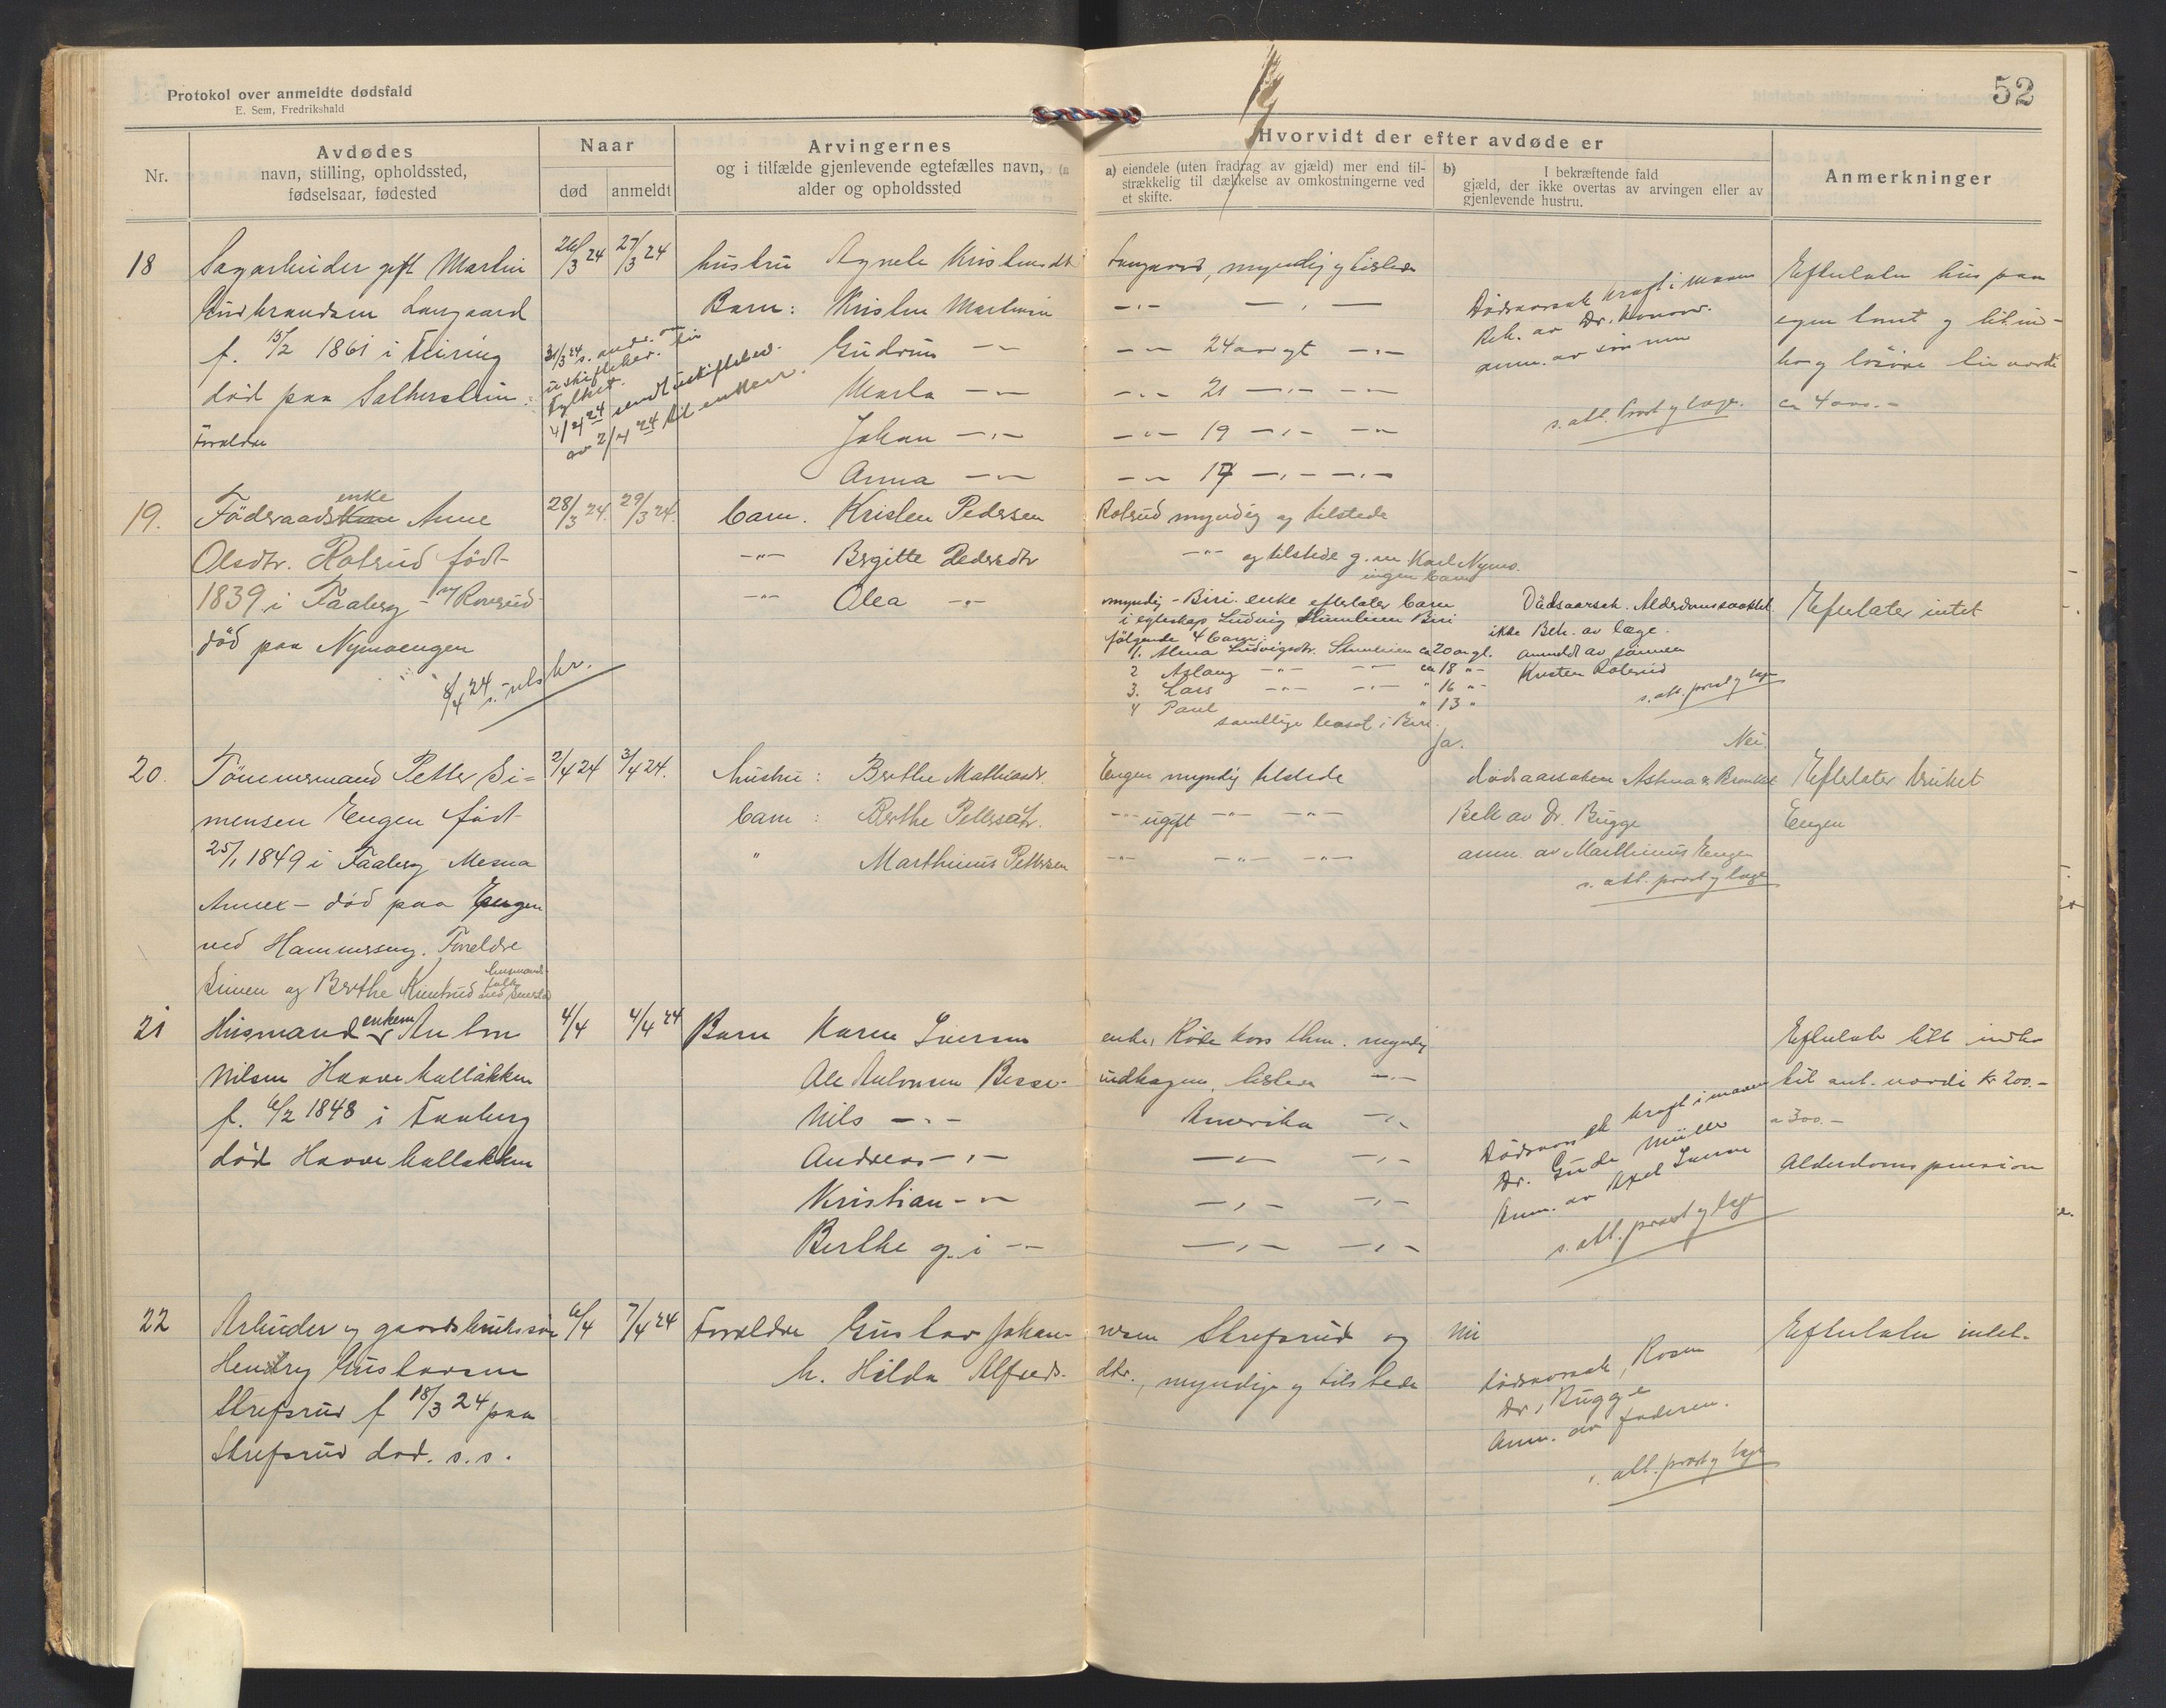 Protokol over anmeldte dødsfald
E. Sem, Fredrikshald
52
Nr.
Avdødes
navn, stilling, opholdssted,
fødselsaar, fødested
Naar
død
anmeldt
Arvingernes
og i tilfælde gjenlevende egtefælles navn,
alder og opholdssted
Hvorvidt der efter avdøde er
a) eiendele (uten fradrag av gjæld) mer end til-
strækkelig til dækkelse av omkostningerne ved
et skifte.
b) I bekræftende fald
gjæld, der ikke overtas av arvingen eller av
gjenlevende hustru.
Anmerkninger
18
Sagarbeider gift Martin
Gudbrandsen Langaard
f. 15/2 1861 i Feiring
død paa Sætherslien
Foreldre
26/3 24
27/3 24
4/4 24 sendt uskiftebev.
av 2/4 24 til enken.
hustru Agnete Kristensdt
Barn: Kristen Martinsen
Gudrun -"-
Marta -"-
Johan -"-
Anna -"-
Langaard, myndig og tilstede
-"- -"-
-"- 24 aar ugt -"-
-"- 21 -"- -"-
-"- 19 -"- -"-
-"- 17 -"- -"-
Dødsaarsak kræft i maven
Beh. av Dr.
anm. av sønnen
s. att. prest og læge.
Efterlater hus paa
egen tomt og litt ind-
bo og løsøre til værdi
ca 4000.-
19.
Föderaadsenke Anne
Olsdtr. Rolsrud født
1839 i Faaberg
død paa Nymoengen
8/4 24 s.
28/3 24.
29/3 24.
barn. Kristen Pedersen
-"- Birgitte Pedersdtr
-"- Olea -"-
Rolsrud myndig og tilstede
-"- og tilstede g. m Karl Nymo.
ingen barn
myndig - Biri. enke efterlater barn
i egteskap Ludvig Biri
følgende 4 barn:
1. Alma Ludvigsdtr. ca 20 aar gl.
2 Aslaug -"- -"- ca 18 "-
3. Lars -"- -"- " 16 "-
4 Paul " 13 "
samtlige bosat i Biri.
Dödsaarsak. Alderdomssvakhet
ikke Beh. av læge.
anmeldt av sønnen
Kristen Rolsrud
s. att. prest og læge
Efterlater intet
20.
Tömmermand Petter Si=
mensen Engen født
25/1 1849 i Faaberg Mesna
Annex - död paa Engen
ved Hammerseng. Foreldre
Simen og Berthe
husmands-
folk
2/4 24
3/4 24.
hustru: Berthe Mathiasdr.
barn: Berthe Pettersdtr.
" Marthinus Pettersen
Engen myndig tilstede
-"- ugift -"- -"-
-"- -"- -"-
Ja.
Nei.
dødsaarsaken Astma &
Beh av Dr. Bugge
anm. av Marthinus Engen
s. att. prest og læge
Efterlater bruket
Engen
21
Husmandsenken
Nilsen Haave
f. 6/2 1848 i Faaberg
død Haave
4/4
4/4 24
Barn Karen Iversen
Ole Antonsen
Nils -"-
Andreas -"-
Kristian -"-
Berthe g. i -"-
enke, Røde kors Lhm. myndig
-"-
Amerika -"-
-"- -"-
-"- -"-
-"- -"-
Dødsaarsak kræft i maven
Dr. Gude Müller
Anm. av Axel Iversen
s. att. prest og læge
Efterlater litt indbo
til ant. værdi kr 200.-
a 300.-
Alderdomspension
22
Arbeider og gaardbrukersøn
Hendry Gustavsen
Skrefsrud f 18/3 24 paa
Skrefsrud død. s. s.
6/4
7/4 24
Foreldre Gustav Johan-
h. Hilda Alfreds-
nesen Skrefsrud og
dtr., myndige og tilstede
Nei
dødsaarsak, Rosen
Dr, Bugge
Anm. av faderen.
s. att. prest og læge
Efterlater intet.